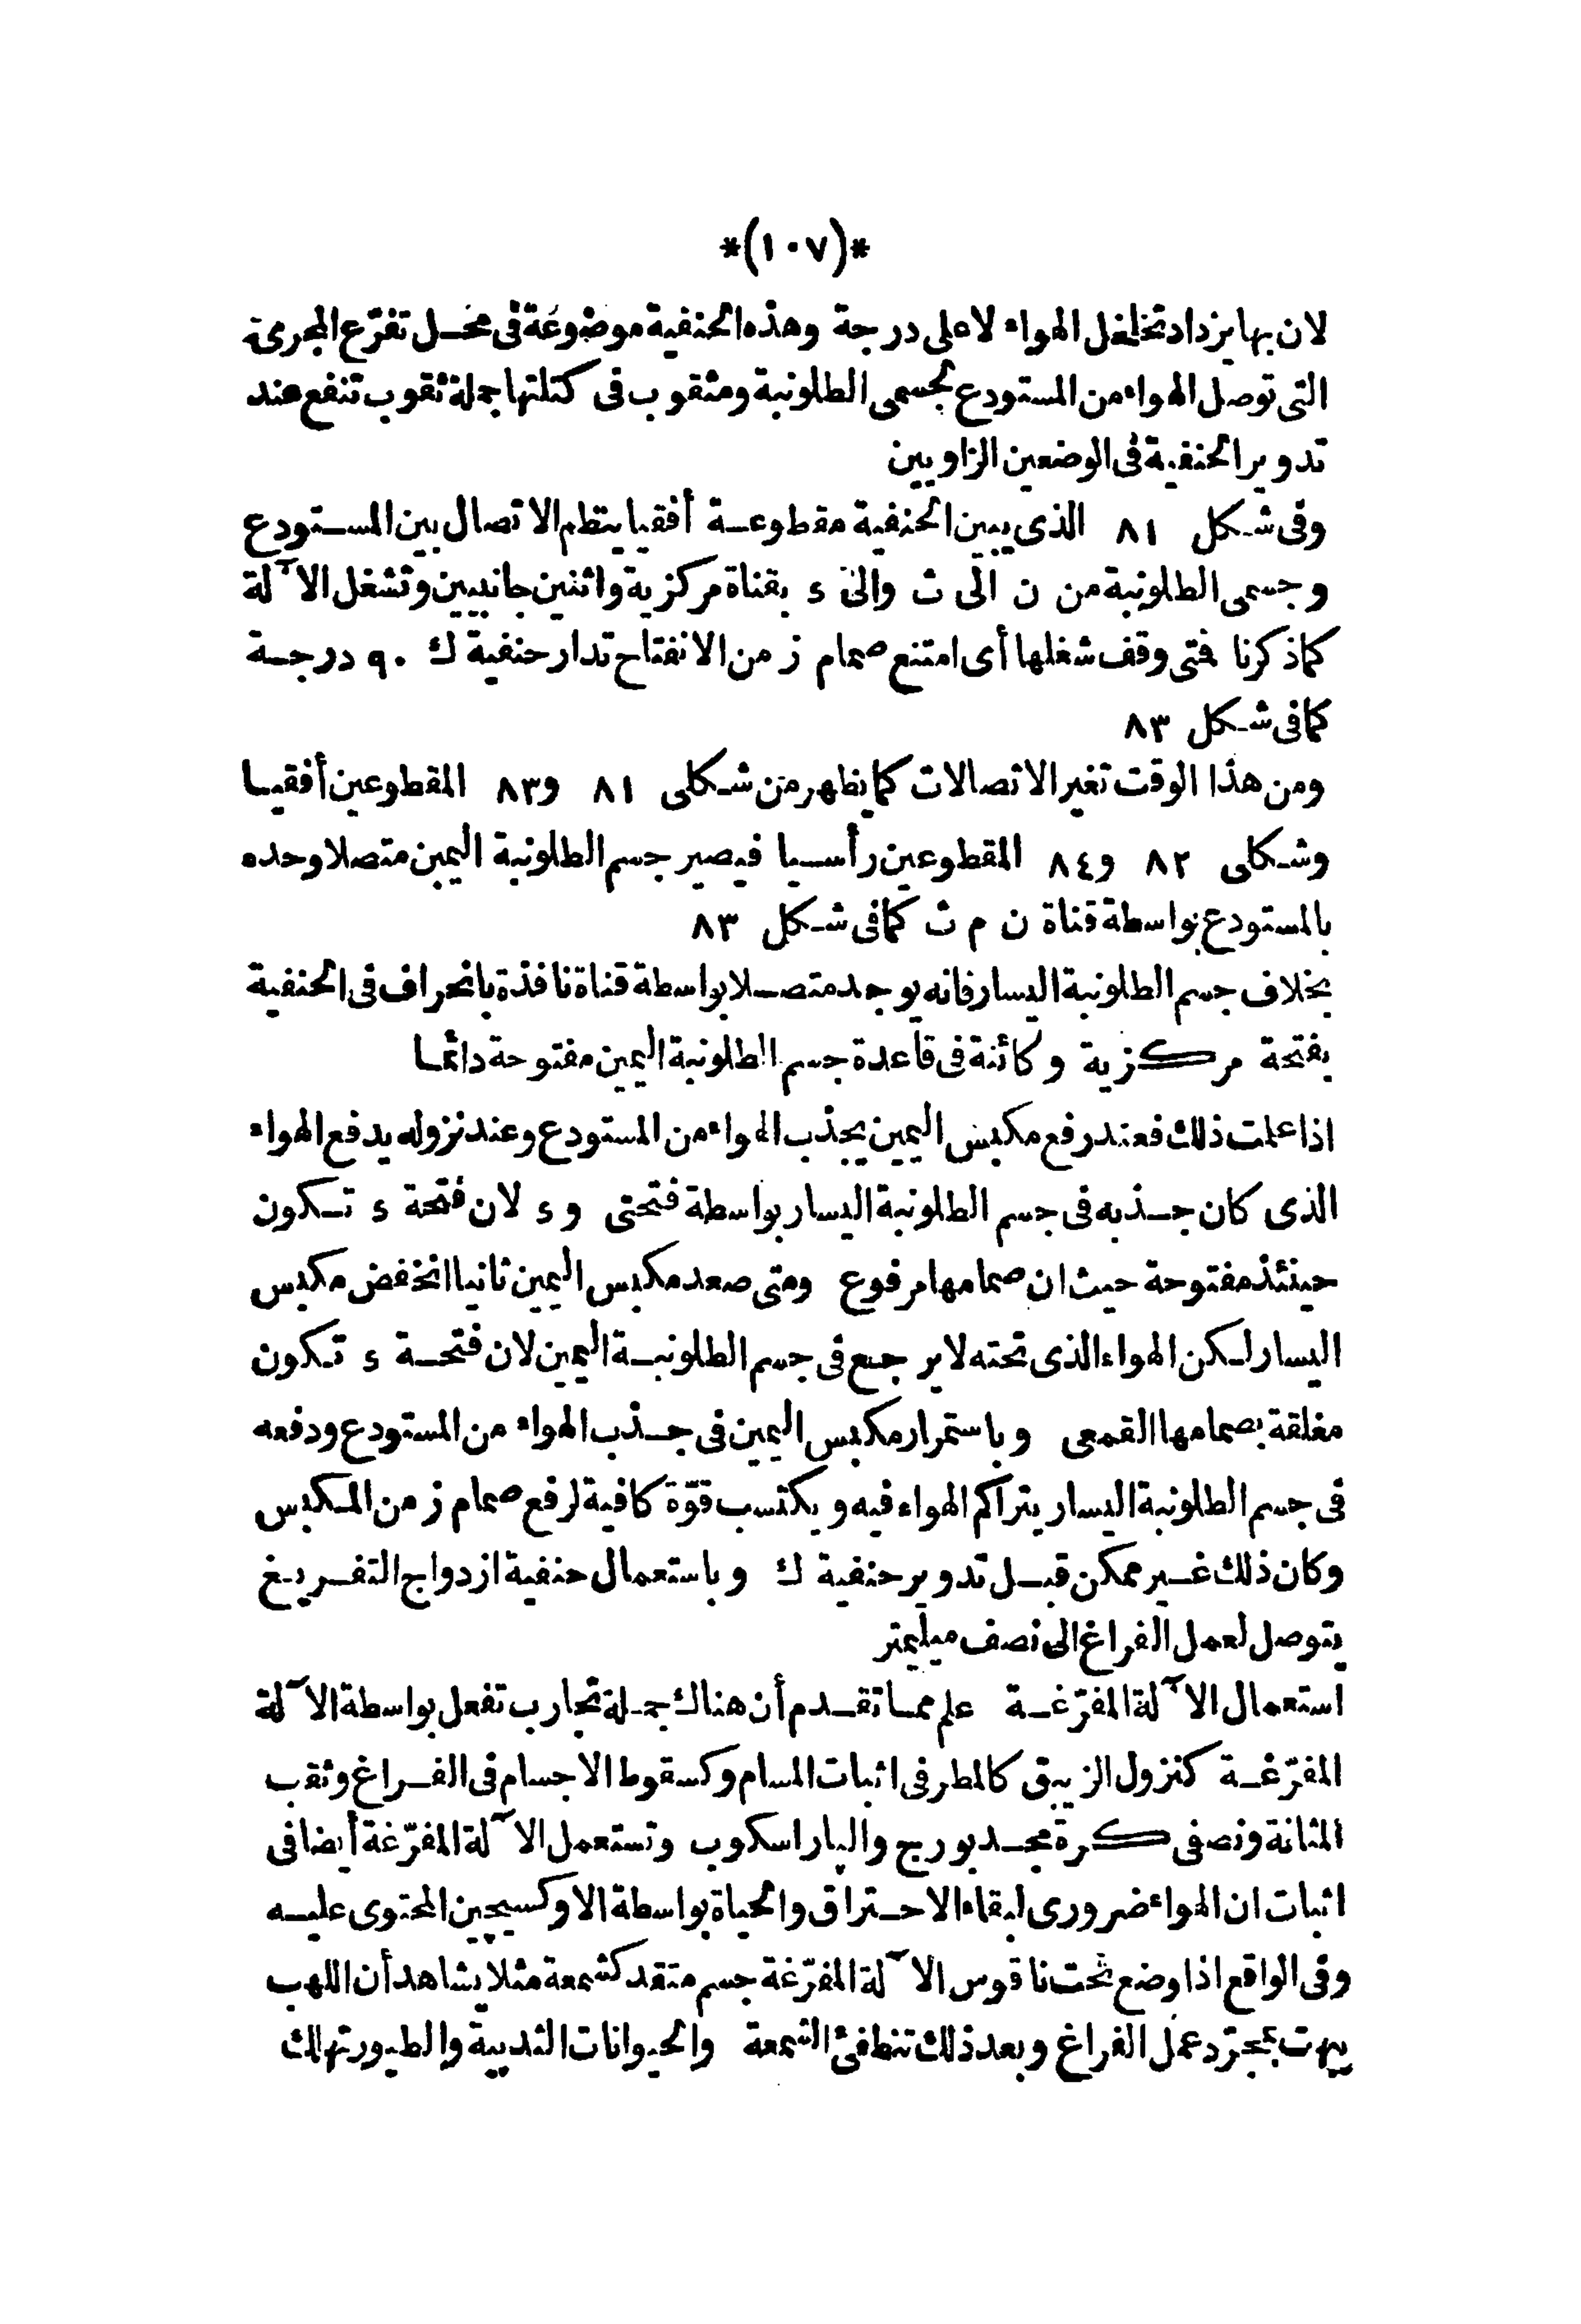 *(١٠٧)*
لان بها يزداد تخلخل الهواء لاعلى درجة وهذه الحنفية موضوعة فى محل تفرّع المجرى
التى توصل الهواء من المستودع لجسمى الطلونبة ومثقوب فى كتلتها جملة ثقوب تنفع عند
تدوير الحنفية فى الوضعين الزاويين
وفى شكل ٨١ الذى يبين الحنفية مقطوعة أفقيا ينتظم الاتصال بين المستودع
وجسمى الطلونبة من ن الى ث والى ء بقناة مركزية واثنين جانبيين وتشغل الآلة
كما ذكرنا فمتى وقف شغلها أى امتنع صمام ز من الانفتاح تدار حنفية ك ٩٠ درجة
كما فى شكل ٨٣
ومن هذا الوقت تغير الاتصالات كما يظهر من شكلى ٨١ و٨٣ المقطوعين أفقيا
وشكلى ٨٢ و٨٤ المقطوعين رأسيا فيصير جسم الطلونبة اليمين متصلا وحده
بالمستودع بواسطة قناة ن م ث كما فى شكل ٨٣
بخلاف جسم الطلونبة اليسار فانه يوجد متصلا بواسطة قناة نافذة بانحراف فى الحنفية
بفتحة مركزية و كائنة فى قاعدة جسم الطلونبة اليمين مفتوحة دائما
اذا علمت ذلك فعند رفع مكبس اليمين يجذب الهواء من المستودع وعند نزوله يدفع الهواء
الذى كان جذبه فى جسم الطلونبة اليسار بواسطة فتحتى و ء لان فتحة ء تكون
حينئذ مفتوحة حيث ان صمامها مرفوع ومتى صعد مكبس اليمين ثانيا انخفض مكبس
اليسار لكن الهواء الذى تحته لا يرجع فى جسم الطلونبة اليمين لان فتحة ء تكون
مغلقة بصمامها القمعى وباستمرار مكبس اليمين فى جذب الهواء من المستودع ودفعه
فى جسم الطلونبة اليسار يتراكم الهواء فيه ويكتسب قوّة كافية لرفع صمام ز من المكبس
وكان ذلك غير ممكن قبل تدوير حنفية ك وباستعمال حنفية ازدواج التفريغ
يتوصل لعمل الفراغ الى نصف ميليمتر
استعمال الآلة المفرّغة علم مما تقدم أن هناك جملة تجارب تفعل بواسطة الآلة
المفرّغة كنزول الزيبق كالمطر فى اثبات المسام وكسقوط الاجسام فى الفراغ وثقب
المثانة ونصفى كرة مجدبورج والپاراسكوب وتستعمل الآلة المفرّغة أيضا فى
اثبات ان الهواء ضرورى لبقاء الاحتراق والحياة بواسطة الاوكسيجين المحتوى عليه
وفى الواقع اذا وضع تحت ناقوس الآلة المفرّغة جسم متقد كشمعة مثلا يشاهد أن اللهب
يبهت بمجرّد عمل الفراغ وبعد ذلك تنطفئ الشمعة والحيوانات الثديية والطيور تهلك